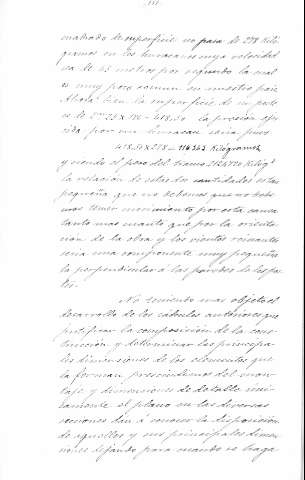 cuadrado de superficie no pasa de 278 Kiló-
gramos en los huracanes cuya velocidad
sea de 45 metros por segundo la cual
es muy poco comun en nuestro pais
Ahora bien la superficie de un palo
es la presion ejer-
cida por un huracan seria pues
418,50 X 278 = 116343 Kilógramos
y siendo el peso del tramo Kilogs
la relacion de estas dos cantidades es tan
pequeña que no debemos que no debe-
mos temer movimiento por esta causa
tanto mas cuanto que por la orienta-
cion de la obra y los vientos reinantes
seria una componente muy pequeña
la perpendicular a las paredes de los pa-
los.
No teniendo mas objeto el
desarrollo de los cálculos anteriores que
justificar la composicion de la cons-
truccion y determinar las principa-
les dimensiones de los elementos que
la forman, prescindimos del mon-
taje y dimensiones de detalle úni-
camente el plano en las diversas
secciones dan á conocer la disposicion
de aquellos y sus principales dimen-
siones dejando para cuando se haga